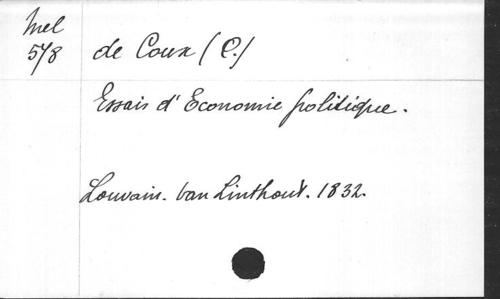 Mel
5/8
de Coux (C.)
Essais d'Economie politique.
Louvain. Van Linthout. 1832.